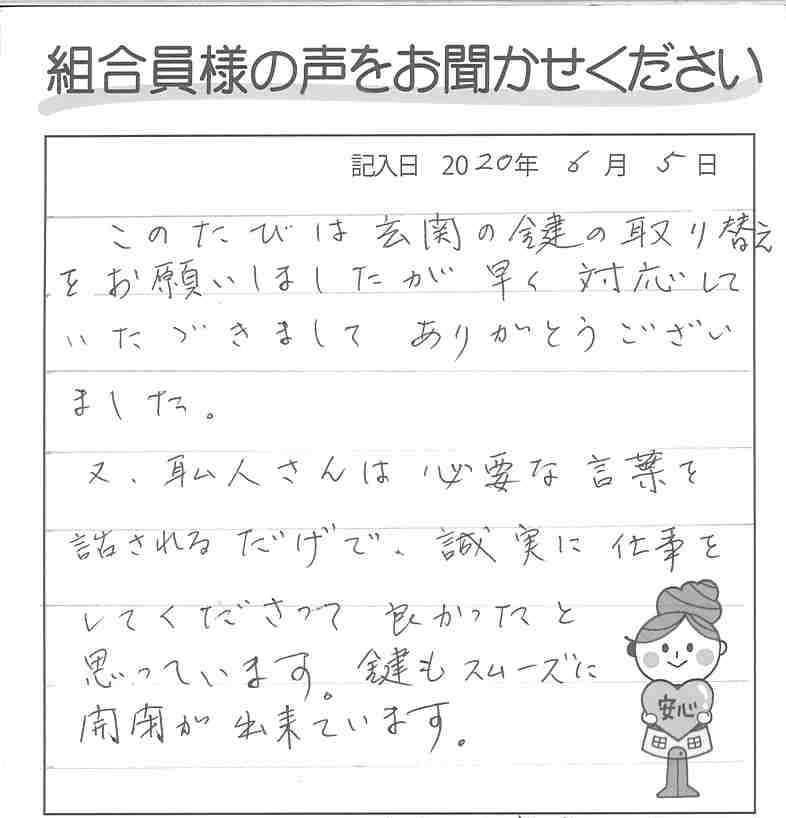 組合員様の声をお聞かせください
記入日 2020年 6月 5日
このたびは玄関の鍵の取り替え
をお願いしましたが 早く 対応して
いただきまして ありがとうござい
ました。
又、職人さんは 必要な 言葉を
話されるだけで、誠実に 仕事を
してくださって 良かったと
思っています。鍵もスムーズに
開閉が 出来ています。
安心